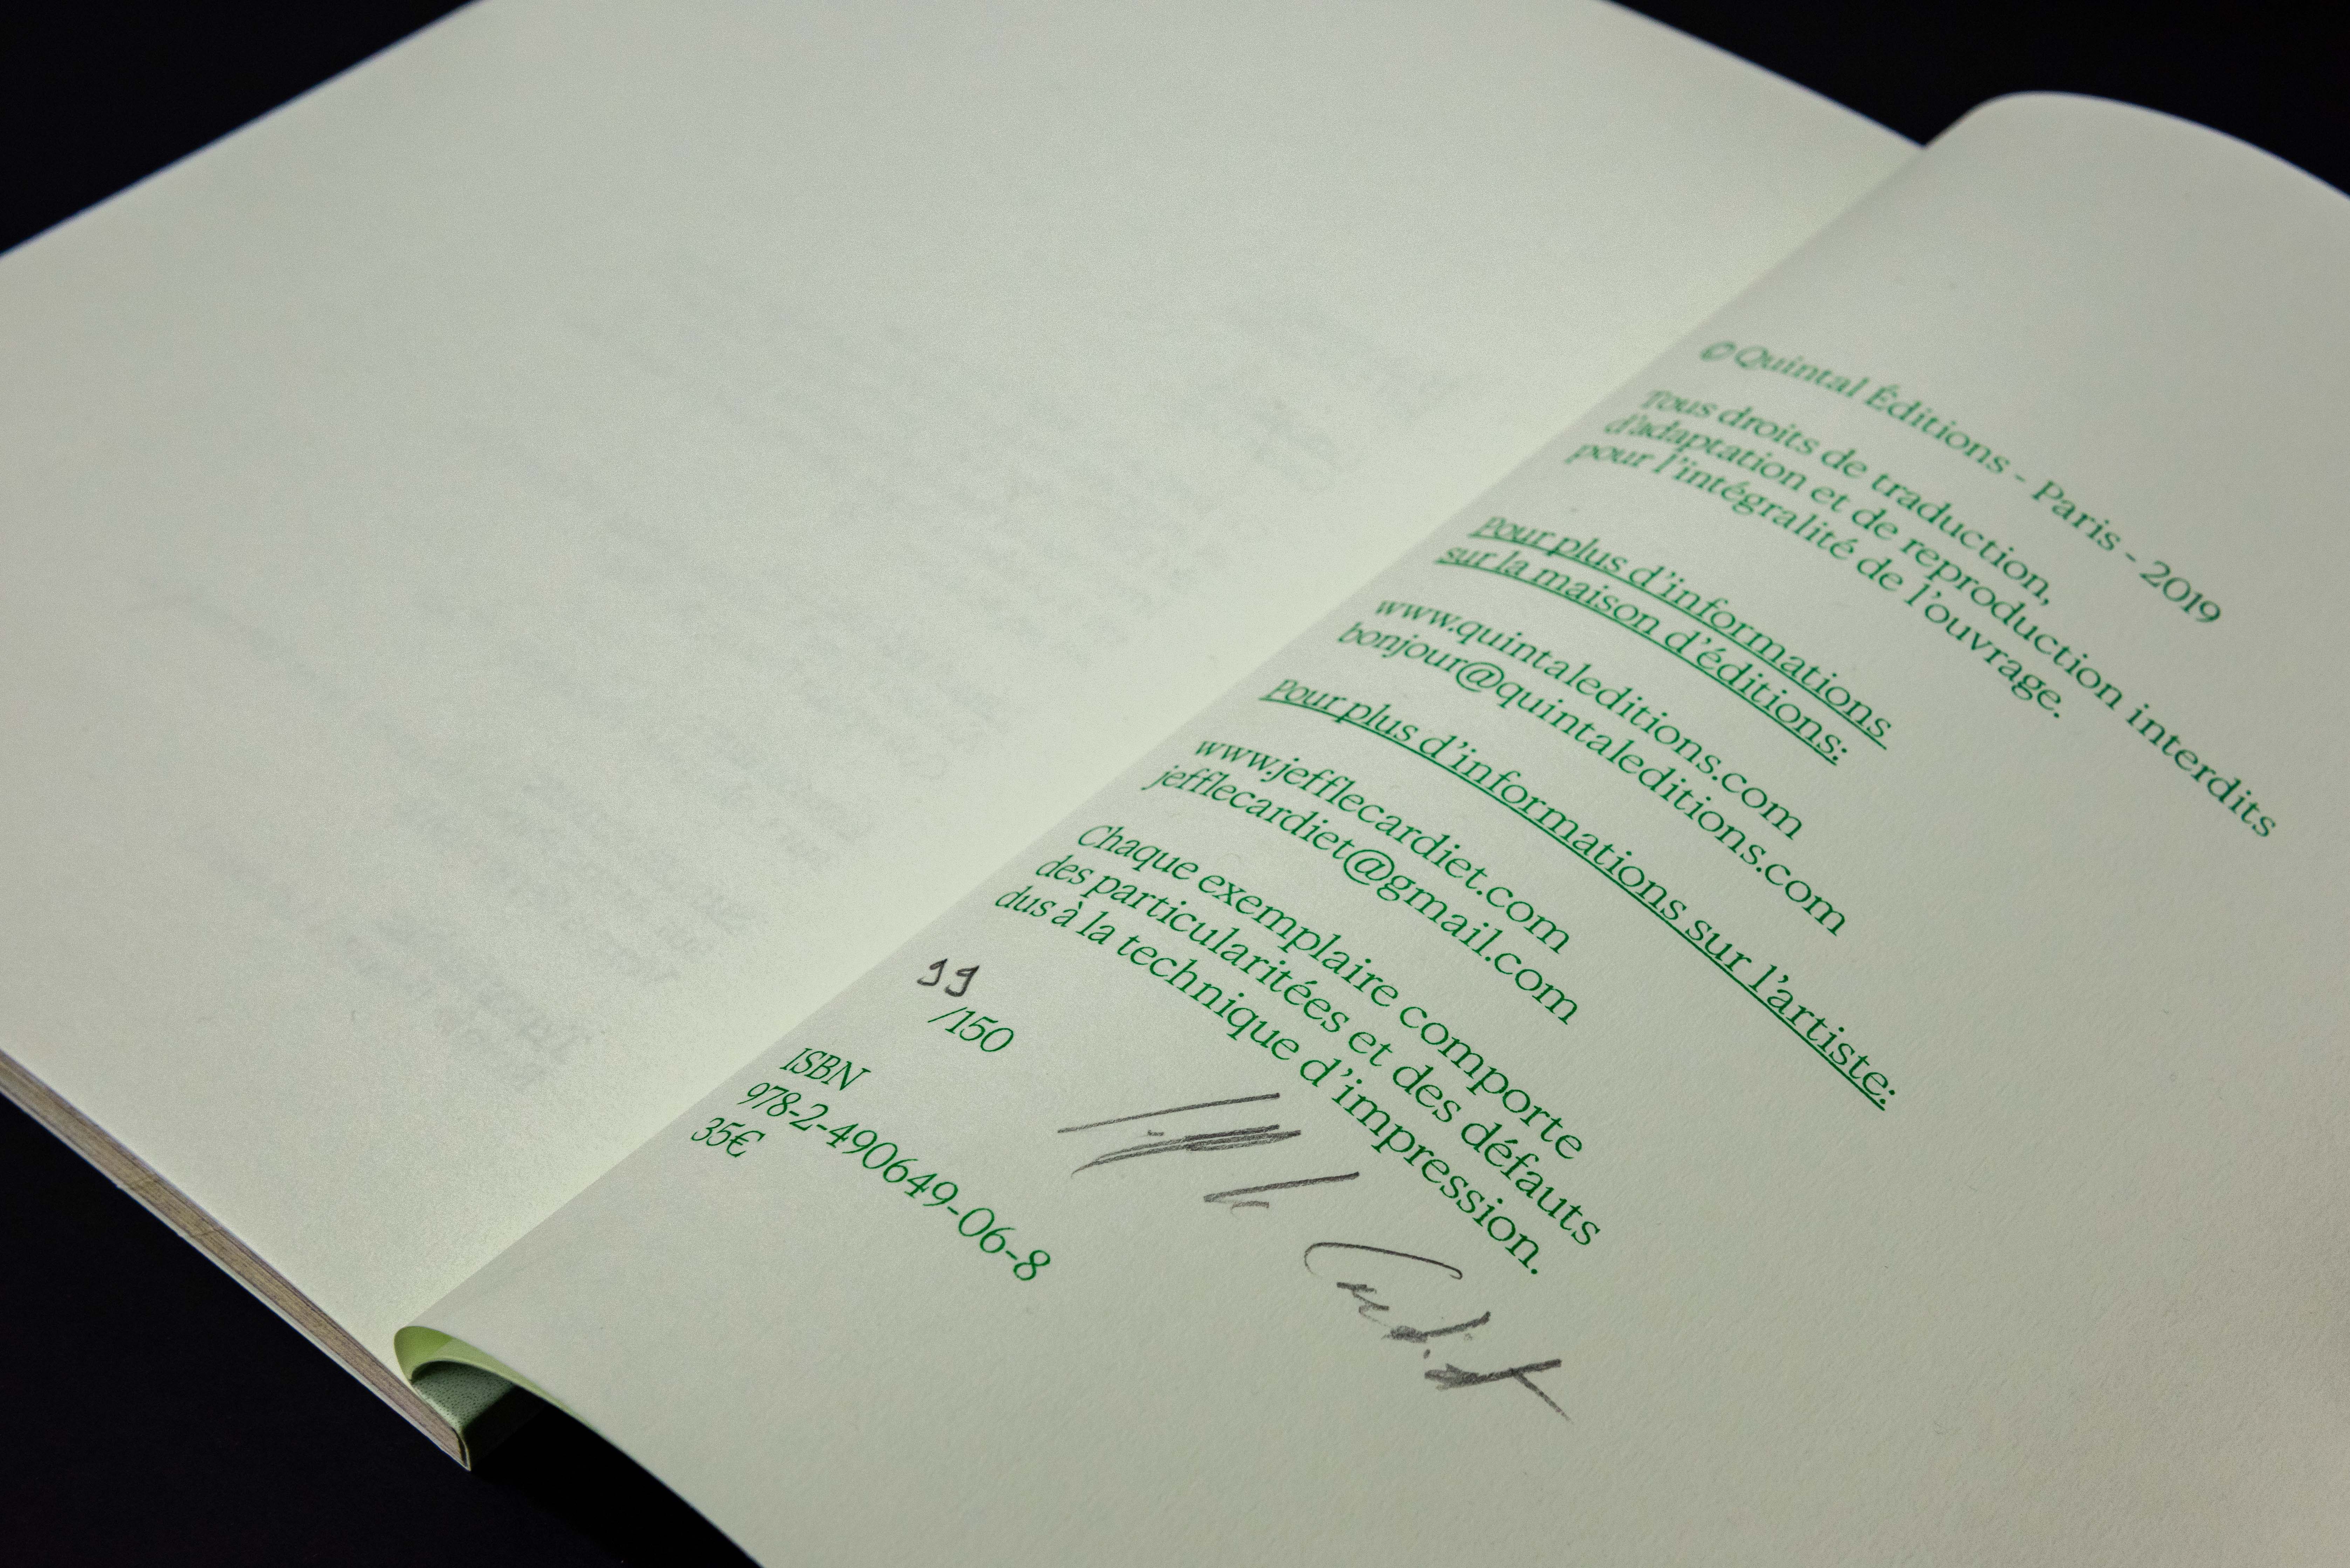 © Quintal Éditions - Paris - 2019
Tous droits de traduction,
d'adaptation et de reproduction interdits
pour l'intégralité de l'ouvrage.
pour plus d'informations
sur la maison d'éditions:
www.quintaleditions.com
bonjour@quintaleditions.com
pour plus d'informations sur l'artiste:
www.jefflecardiet.com
jefflecardiet@gmail.com
Chaque exemplaire comporte
des particularitées et des défauts
dus à la technique d'impression.
99
/150
ISBN
978-2-490649-06-8
35€